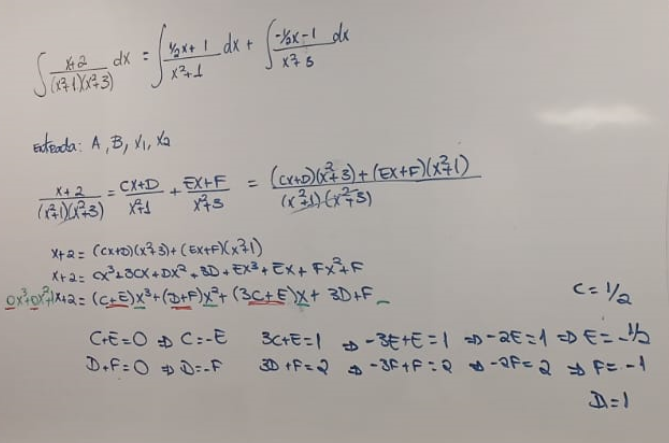 ∫ x+2 / (x²+1)(x²+3) dx = ∫ ½x+1 / x²+1 dx + ∫ -½x-1 / x²+3 dx
Entrada: A, B, x₁, x₂
x+2 / (x²+1)(x²+3) = Cx+D / x²+1 + Ex+F / x²+3 = (Cx+D)(x²+3)+(Ex+F)(x²+1) / (x²+1)·(x²+3)
x+2= (Cx+D)(x²+3)+(Ex+F)(x²+1)
x+2= Cx³+3Cx+Dx²+3D+Ex³+Ex+Fx²+F
0x³+0x²+1x+2= (C+E)x³+(D+F)x²+(3C+E)x+3D+F
C=1/2
C+E=0 ⇒ C=-E 3C+E=1 ⇒ -3E+E=1 ⇒ -2E=1 ⇒ E=-1/2
D+F=0 ⇒ D=-F 3D+F=2 ⇒ -3F+F=2 ⇒ -2F=2 ⇒ F=-1
D=1